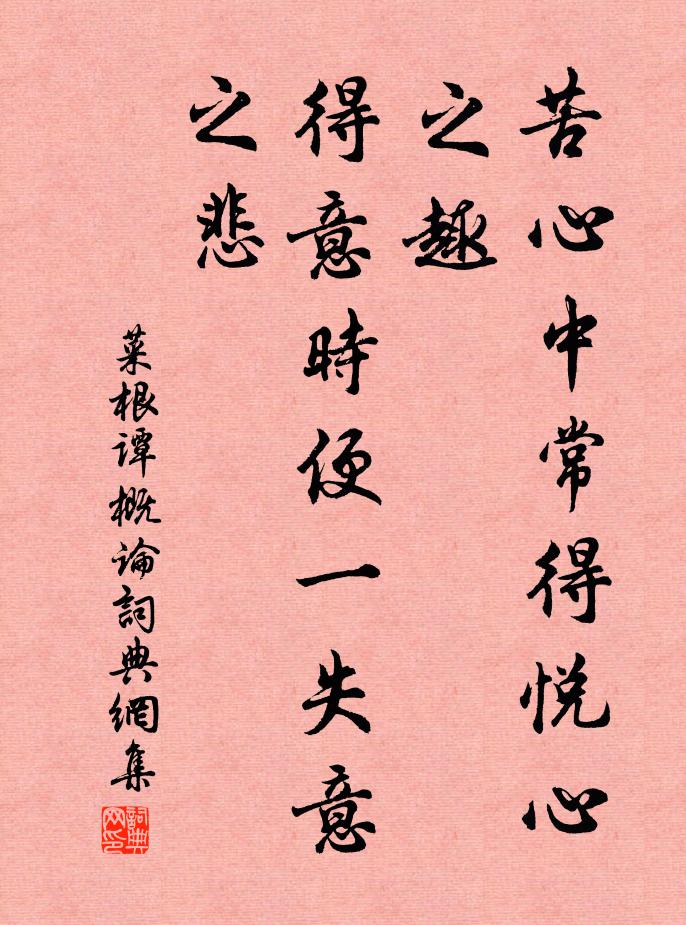 苦心中常得悦心
之趣
得意時便一失意
之悲
菜根谭概論詞典網集
詞典
网印